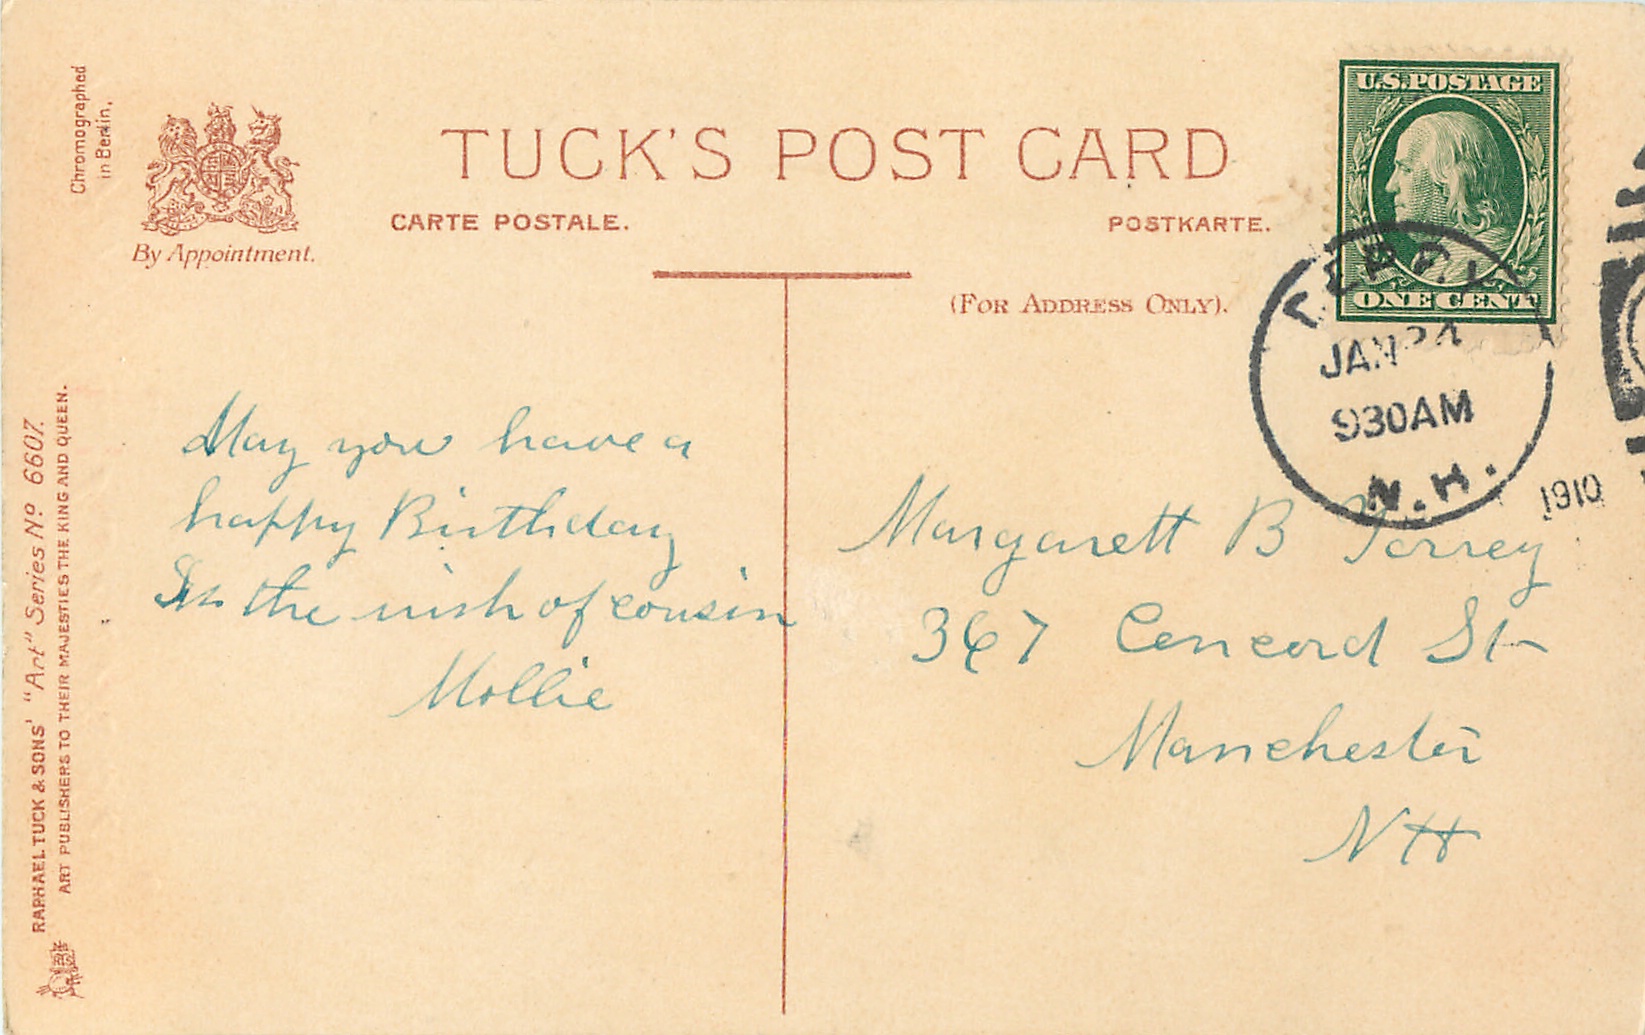 Chromographed
in Berlin.
By Appointment.
TUCK'S POST CARD
CARTE POSTALE.
POSTKARTE.
(FOR ADDRESS ONLY).
U.S. POSTAGE
ONE CENT
JAN 24
930AM
N.H.
1910
May you have a
happy Birthday
Is the wish of cousin
Mollie
Margarett B Torrey
367 Concord St
Manchester
NH
RAPHAEL TUCK & SONS' "Art" Series No 6607.
ART PUBLISHERS TO THEIR MAJESTIES THE KING AND QUEEN.